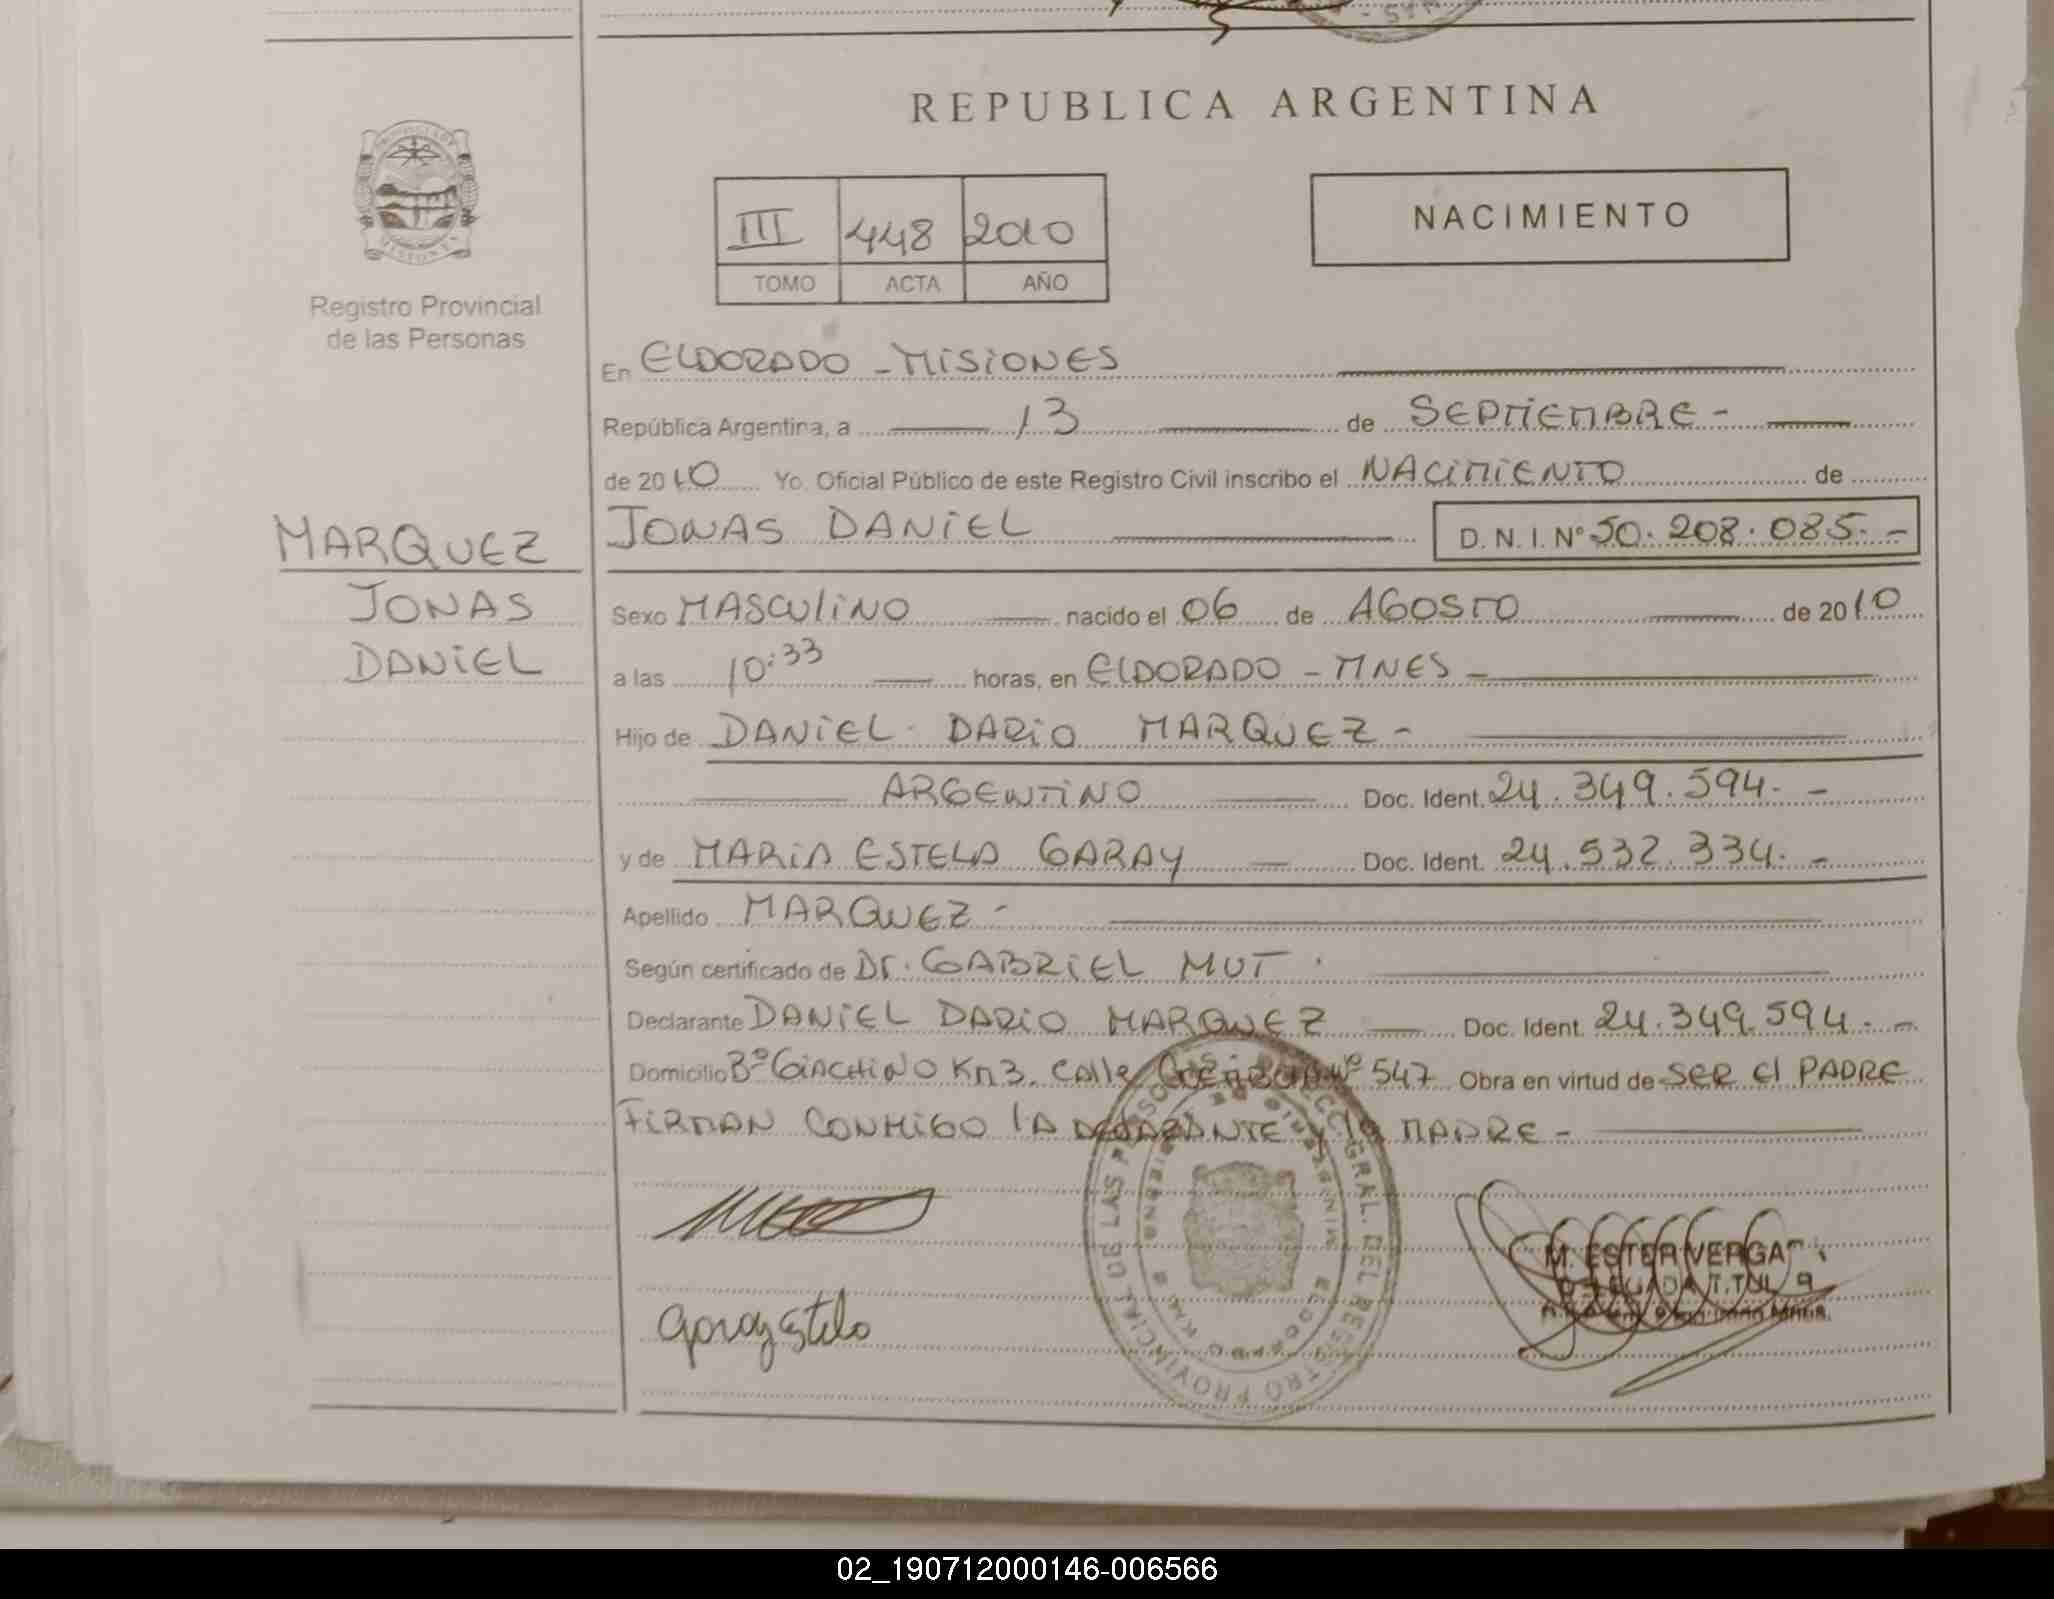 REPUBLICA ARGENTINA
III 448 2010
TOMO ACTA AÑO
NACIMIENTO
Registro Provincial
de las Personas
MARQUEZ
JONAS
DANIEL
En ELDORADO - MISIONES
República Argentina, a 13 de SEPTIEMBRE -
de 2010 Yo, Oficial Público de este Registro Civil inscribo el NACIMIENTO de
JONAS DANIEL D. N. I. Nº 50.208.085.-
Sexo MASCULINO nacido el 06 de AGOSTO de 2010
a las 10:33 horas, en ELDORADO - MNES -
Hijo de DANIEL DARIO MARQUEZ -
ARGENTINO Doc. Ident. 24.349.594.-
y de MARIA ESTELA GARAY Doc. Ident. 24.532.334.-
Apellido MARQUEZ -
Según certificado de Dr. GABRIEL MUT.
Declarante DANIEL DARIO MARQUEZ Doc. Ident. 24.349.594.-
Domicilio Bº GIACHINO Km3. Calle Nº 547 Obra en virtud de SER El PADRE
FIRMAN CONMIGO LA DECLARANTE y la MADRE -
Garay Estela
PROVINCIAL DE LAS DIRECC. GRAL. DEL REGISTRO
ELDORADO
M. ESTER VERGA
02_190712000146-006566